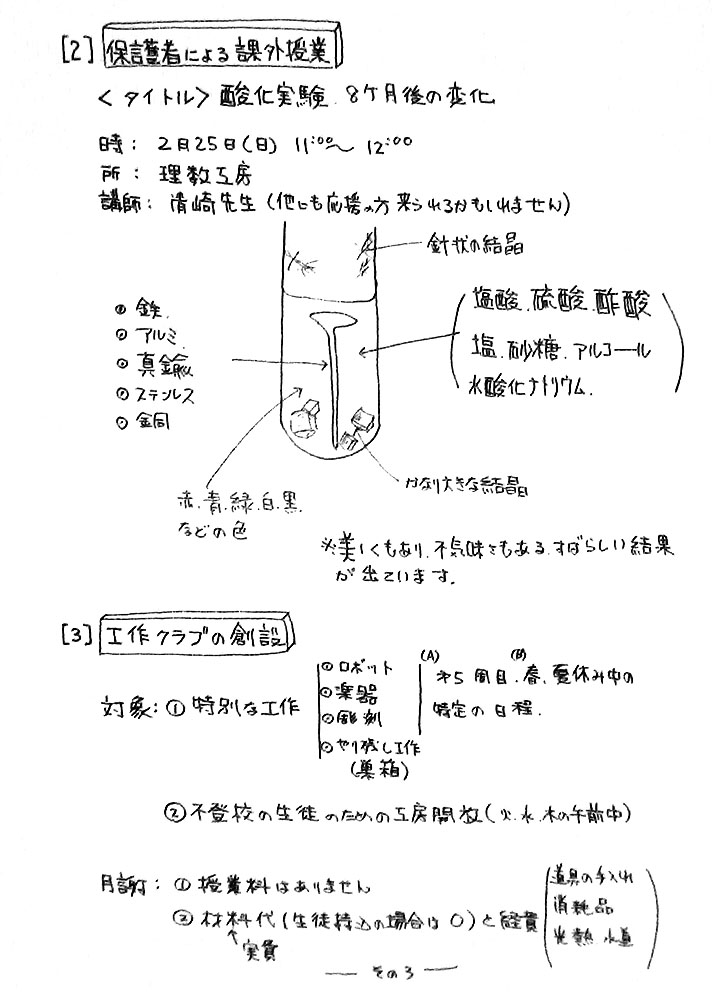 [2] 保護者による課外授業
<タイトル> 酸化実験.8ケ月後の変化
時: 2月25日(日) 11:00〜12:00
所: 理数工房
講師: 清崎先生(他にも応援の方来られるかもしれません)
針状の結晶
塩酸.硫酸.酢酸
塩.砂糖.アルコール
水酸化ナトリウム.
⊙ 鉄.
⊙ アルミ.
⊙ 真鍮
⊙ ステンレス
⊙ 銅
かなり大きな結晶
赤.青.緑.白.黒.
などの色
※美しくもあり.不気味さもある.すばらしい結果
が出ています.
[3] 工作クラブの創設
対象: ① 特別な工作
⊙ ロボット
⊙ 楽器
⊙ 彫刻
⊙ やり残し工作
(巣箱)
(A) (B)
第5週目.春、夏休み中の
特定の日程.
② 不登校の生徒のための工房開放(火.水.木の午前中)
月謝: ① 授業料はありません
② 材料代(生徒持込の場合は0)と経費
↑実費
道具の手入れ
消耗品
光熱 水道
— その3 —